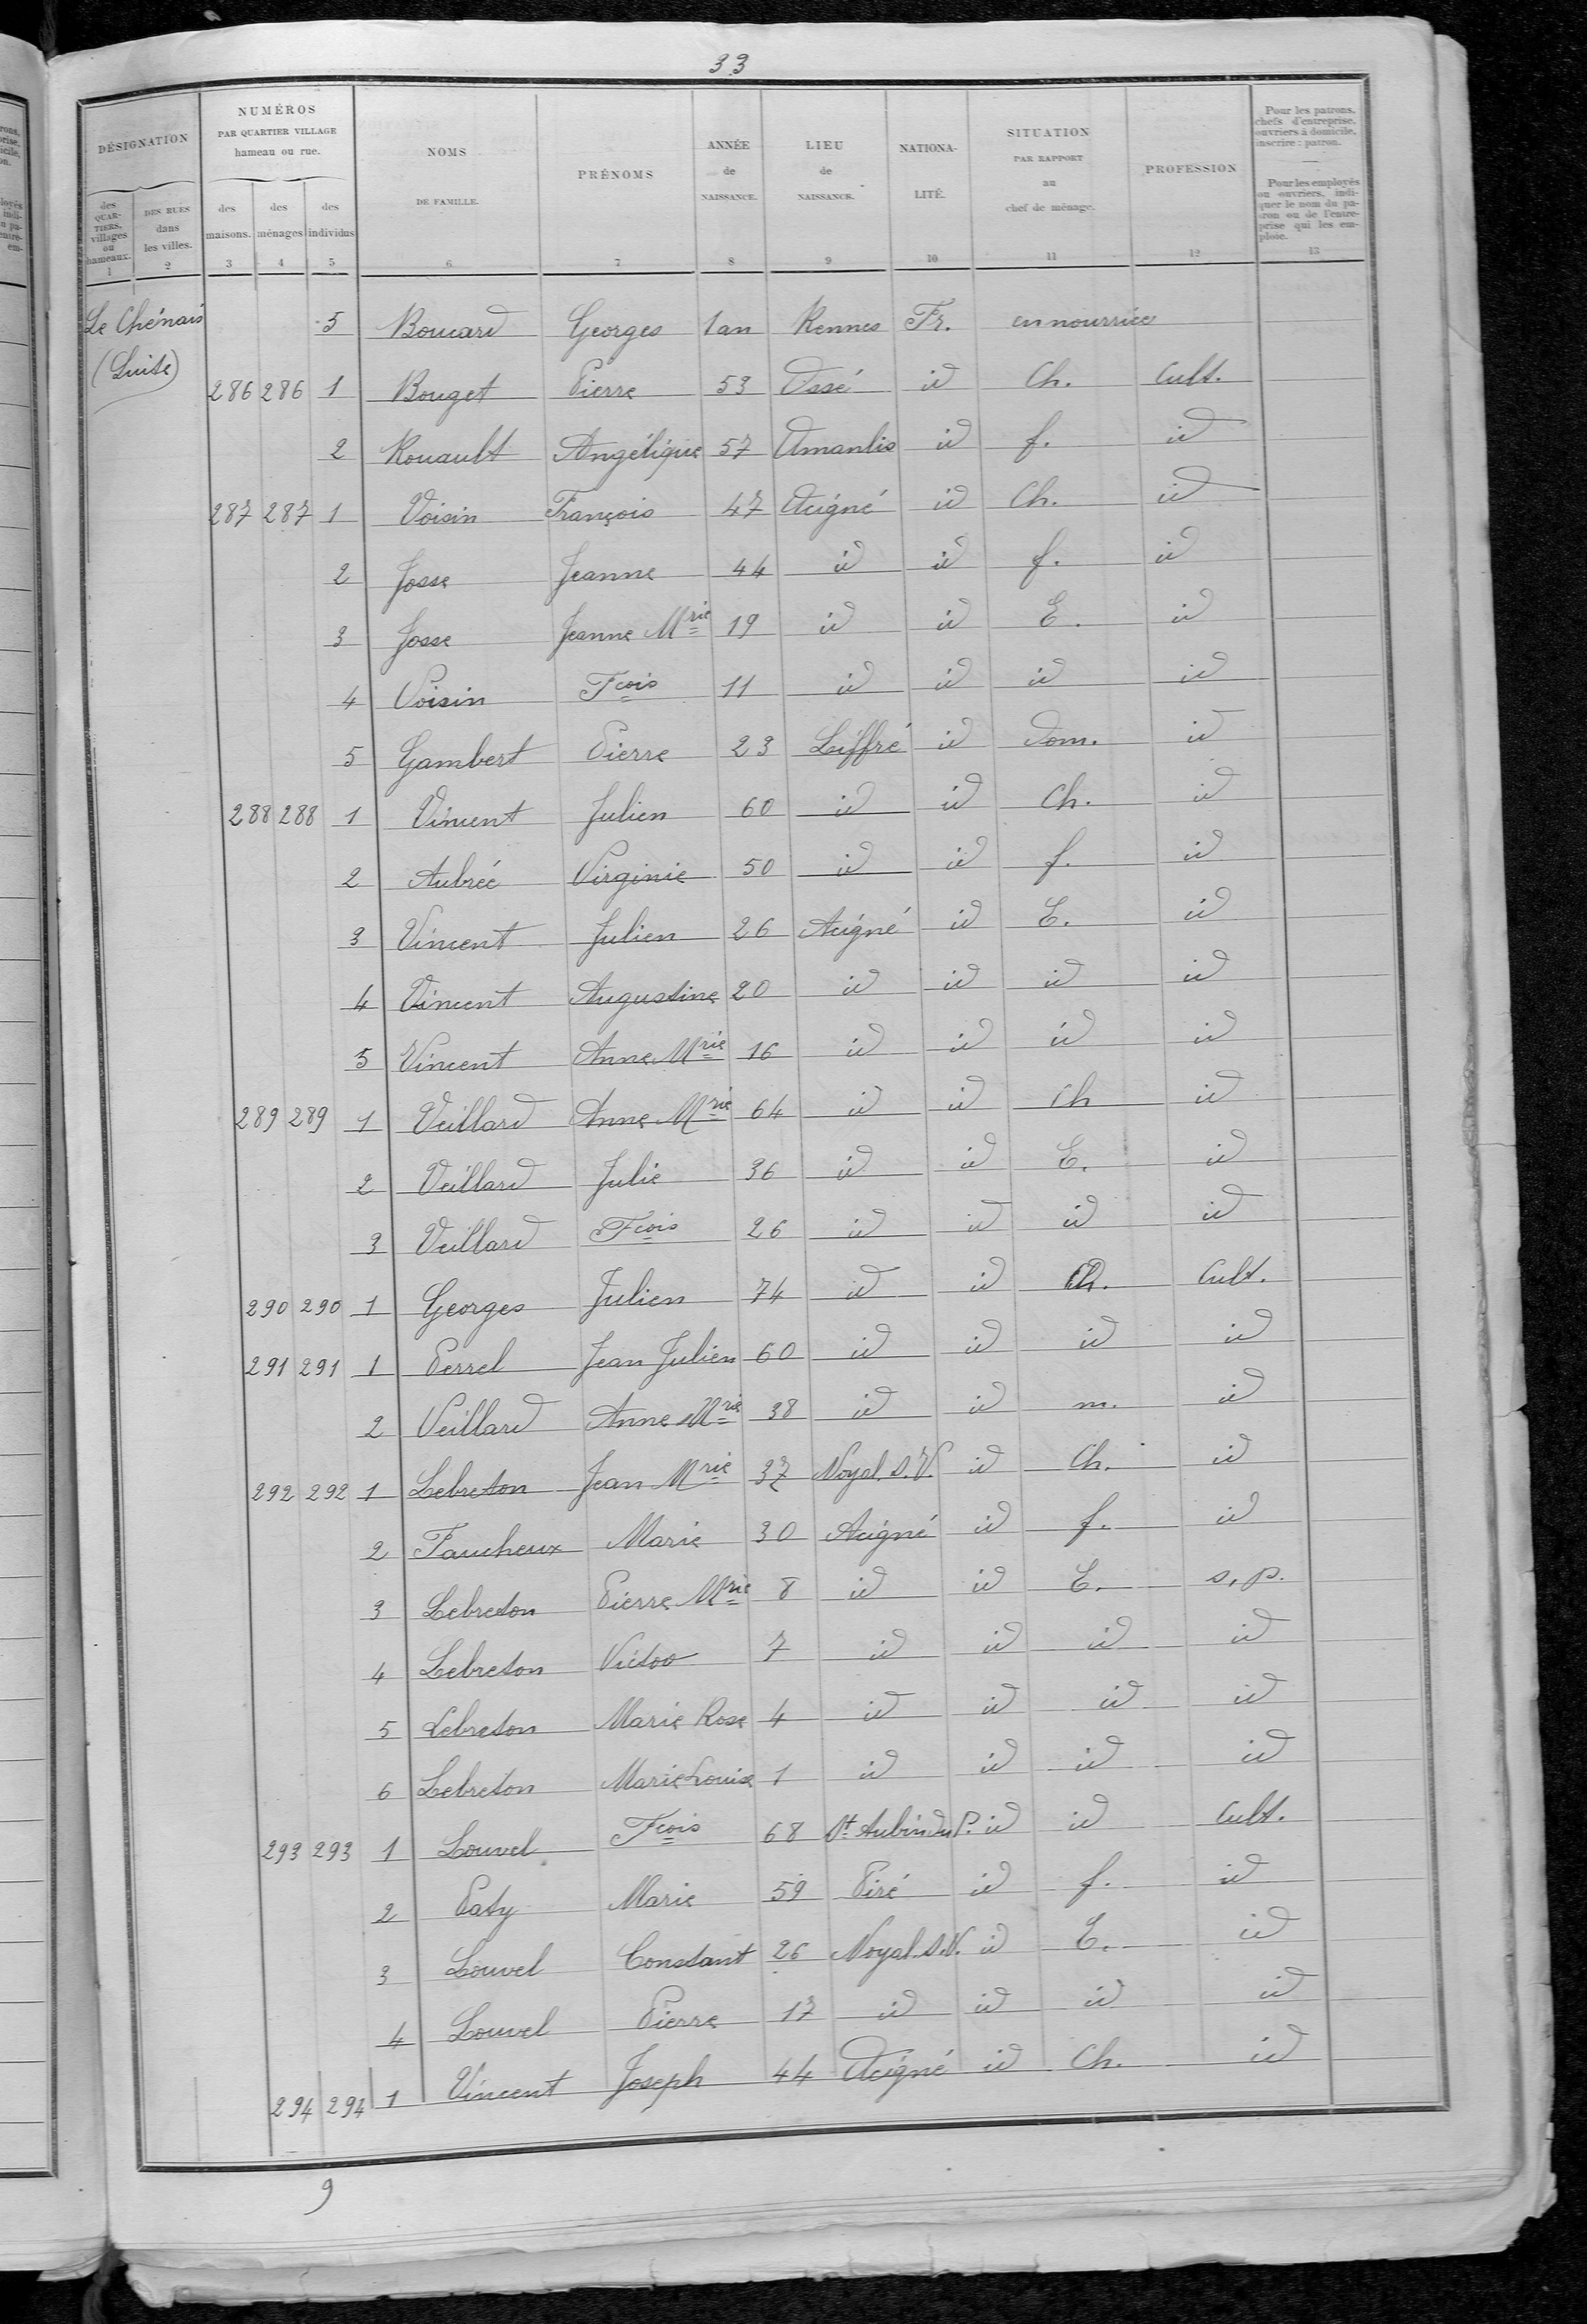 33
DÉSIGNATION
NUMÉROS
PAR QUARTIER VILLAGE
hameau ou rue.
NOMS
DE FAMILLE.
PRÉNOMS
ANNÉE
de
NAISSANCE.
LIEU
de
NAISSANCE.
NATIONA-
LITÉ.
SITUATION
PAR RAPPORT
au
chef de ménage.
PROFESSION
Pour les patrons,
chefs d'entreprise,
ouvriers à domicile,
inscrire : patron.
Pour les employés
ou ouvriers, indi-
quer le nom du pa-
tron ou de l'entre-
prise qui les em-
ploie.
des
QUAR-
TIERS,
villages
ou
hameaux.
DES RUES
dans
les villes.
des
maisons.
des
ménages
des
individus
1 2 3 4 5 6 7 8 9 10 11 12 13
Le Chénais 5 Bouard Georges 1 an Rennes Fr. en nourrice
(Suite) 286 286 1 Bouget Pierre 53 Ossé id Ch. Cult.
2 Rouault Angélique 57 Amanlis id f. id
287 287 1 Voisin François 47 Acigné id Ch. id
2 Josse Jeanne 44 id id f. id
3 Josse Jeanne Mrie 19 id id E. id
4 Voisin Fçois 11 id id id id
5 Gambert Pierre 23 Liffré id Dom. id
288 288 1 Vincent Julien 60 id id Ch. id
2 Aubrée Virginie 50 id id f. id
3 Vincent Julien 26 Acigné id E. id
4 Vincent Augustine 20 id id id id
5 Vincent Anne Mrie 16 id id id id
289 289 1 Veillard Anne Mrie 64 id id Ch id
2 Veillard Julie 36 id id E. id
3 Veillard Fçois 26 id id id id
290 290 1 Georges Julien 74 id id Ch. Cult.
291 291 1 Perrel Jean Julien 60 id id id id
2 Veillard Anne Mrie 38 id id m. id
292 292 1 Lebreton Jean Mrie 37 Noyal s. V. id Ch. id
2 Faucheux Marie 30 Acigné id f. id
3 Lebreton Pierre Mrie 8 id id E. s. p.
4 Lebreton Victor 7 id id id id
5 Lebreton Marie Rose 4 id id id id
6 Lebreton Marie Louise 1 id id id id
293 293 1 Louvel Fçois 68 St Aubin du P. id id Cult.
2 Paty Marie 59 Piré id f. id
3 Louvel Constant 26 Noyal s. V. id E. id
4 Louvel Pierre 17 id id id id
294 294 1 Vincent Joseph 44 Acigné id Ch. id
9